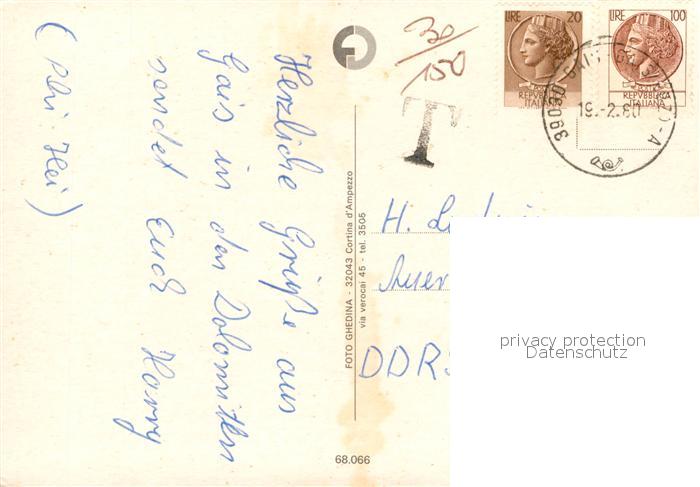 (Ski-Heil)
Herzliche Grüße aus
Gais in den Dolomiten
sendet Euch Harry
FOTO GHEDINA - 32043 Cortina d'Ampezzo
via verocai 45 - tel. 3505
68.066
30/150
T
LIRE 20
REPVBBLICA
ITALIANA
LIRE 100
REPVBBLICA
ITALIANA
39030
19.-2.80
H.
DDR
privacy protection
Datenschutz